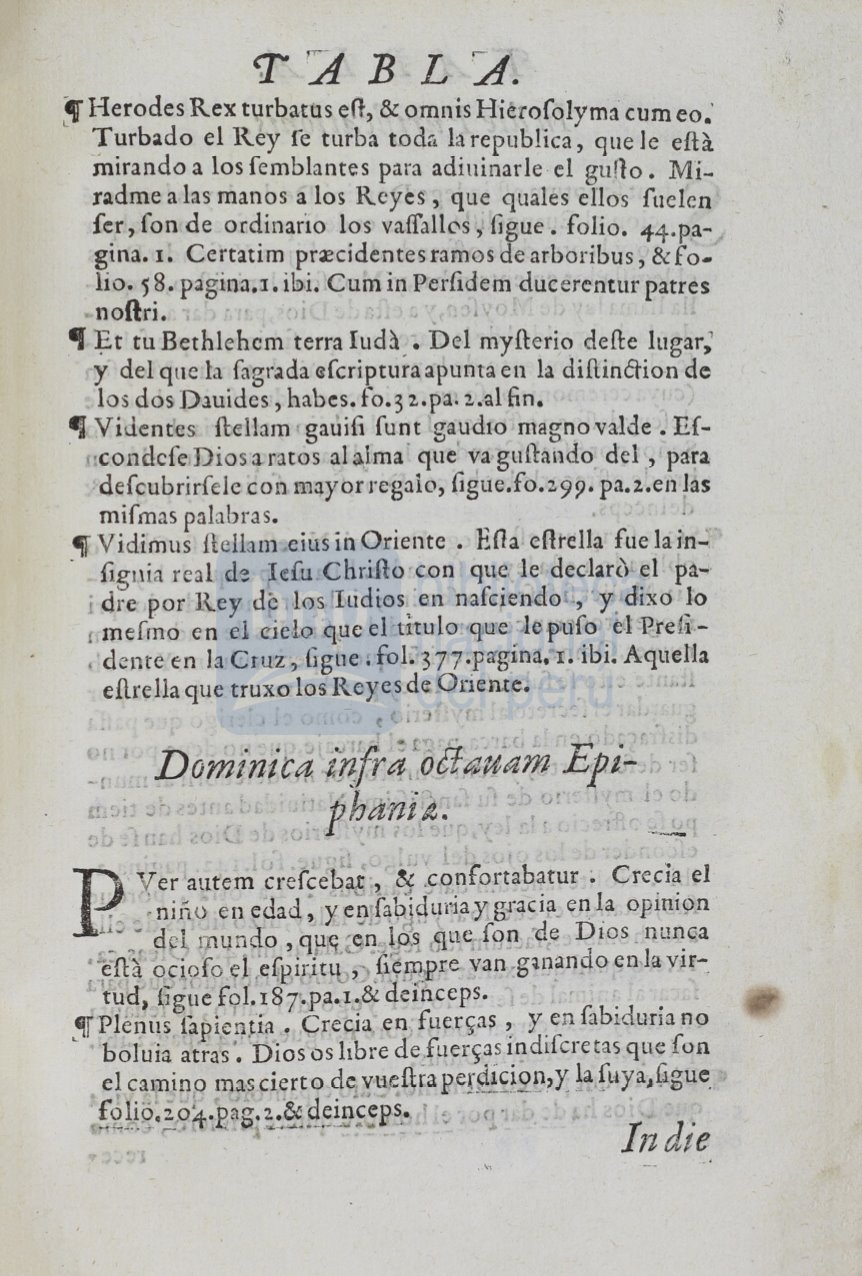 TABLA.
¶ Herodes Rex turbatus eſt, & omnis Hieroſolyma cum eo.
Turbado el Rey ſe turba toda la republica, que le eſtà
mirando a los ſemblantes para adiuinarle el guſto. Mi-
radme a las manos a los Reyes, que quales ellos ſuelen
ſer, ſon de ordinario los vaſſallos, ſigue. folio. 44.pa-
gina. 1. Certatim præcidentes ramos de arboribus, & fo-
lio. 58. pagina.1. ibi. Cum in Perſidem ducerentur patres
noſtri.
¶ Et tu Bethlehem terra Iudà. Del myſterio deſte lugar,
y del que la ſagrada eſcriptura apunta en la diſtinction de
los dos Dauides, habes. fo.32.pa.2.al fin.
¶ Videntes ſtellam gauiſi ſunt gaudio magno valde. Eſ-
condeſe Dios a ratos al alma que va guſtando del, para
deſcubrirſele con mayor regalo, ſigue.fo.299. pa.2.en las
miſmas palabras.
¶ Vidimus ſtellam eius in Oriente. Eſta eſtrella fue la in-
ſignia real de Ieſu Chriſto con que le declarò el pa-
dre por Rey de los Iudios en naſciendo, y dixo lo
meſmo en el cielo que el titulo que le puſo el Preſi-
dente en la Cruz, ſigue. fol. 377.pagina. 1. ibi. Aquella
eſtrella que truxo los Reyes de Oriente.
Dominica infra octauam Epi-
phaniæ.
PVer autem creſcebat, & confortabatur. Crecia el
niño en edad, y en ſabiduria y gracia en la opinion
del mundo, que en los que ſon de Dios nunca
eſtà ocioſo el eſpiritu, ſiempre van ganando en la vir-
tud, ſigue fol.187.pa.1.& deinceps.
¶ Plenus ſapientia. Crecia en fuerças, y en ſabiduria no
boluia atras. Dios os libre de fuerças indiſcretas que ſon
el camino mas cierto de vueſtra perdicion, y la ſuya, ſigue
folio.204.pag.2.& deinceps.
In die